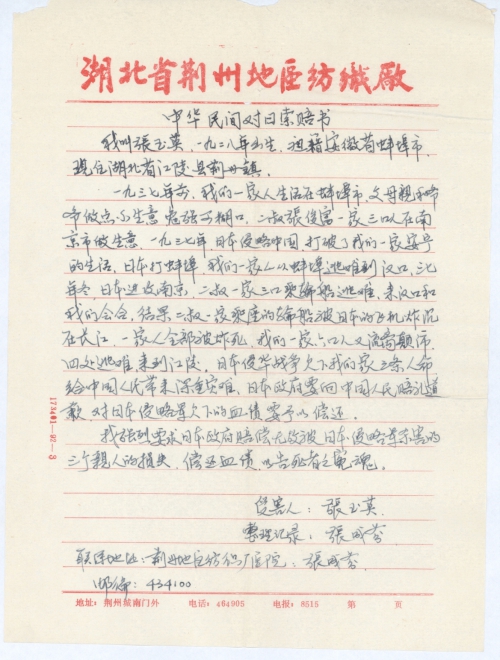 湖北省荆州地区纺織廠
中华民间对日索赔书
我叫張玉英，一九二八年出生，祖籍安徽省蚌埠市，
现住湖北省江陵县荆州镇。
一九三七年前，我们一家人生活在蚌埠市，父母親和爷
爷做点小生意勉强可糊口，二叔張俊富一家三口人在南
京市做生意。一九三七年日本侵略中国，打破了我们一家安宁
的生活，日本打蚌埠，我们一家人从蚌埠逃难到汉口，三七
年冬，日本进攻南京，二叔一家三口乘輪船逃难，来汉口和
我们会合，结果二叔一家乘座的輪船被日本的飞机炸沉
在长江，一家人全部被炸死，我们一家六口人又流离颠沛，
四处逃难来到江陵，日本侵华战争欠下我们家三条人命
给中国人民带来深重灾难，日本政府要向中国人民赔礼道
歉，对日本侵略军欠下的血债要予以偿还。
我强烈要求日本政府赔偿无故被日本侵略军杀害的
三个親人的损失，偿还血债，以告死者之冤魂。
受害人：張玉英
整理记录：張成芬
联係地址：荆州地区纺织厂医院：張成芬
邮编：434100
173401—92—3
地址：荆州城南门外 电话：464905 电报：8515 第 页